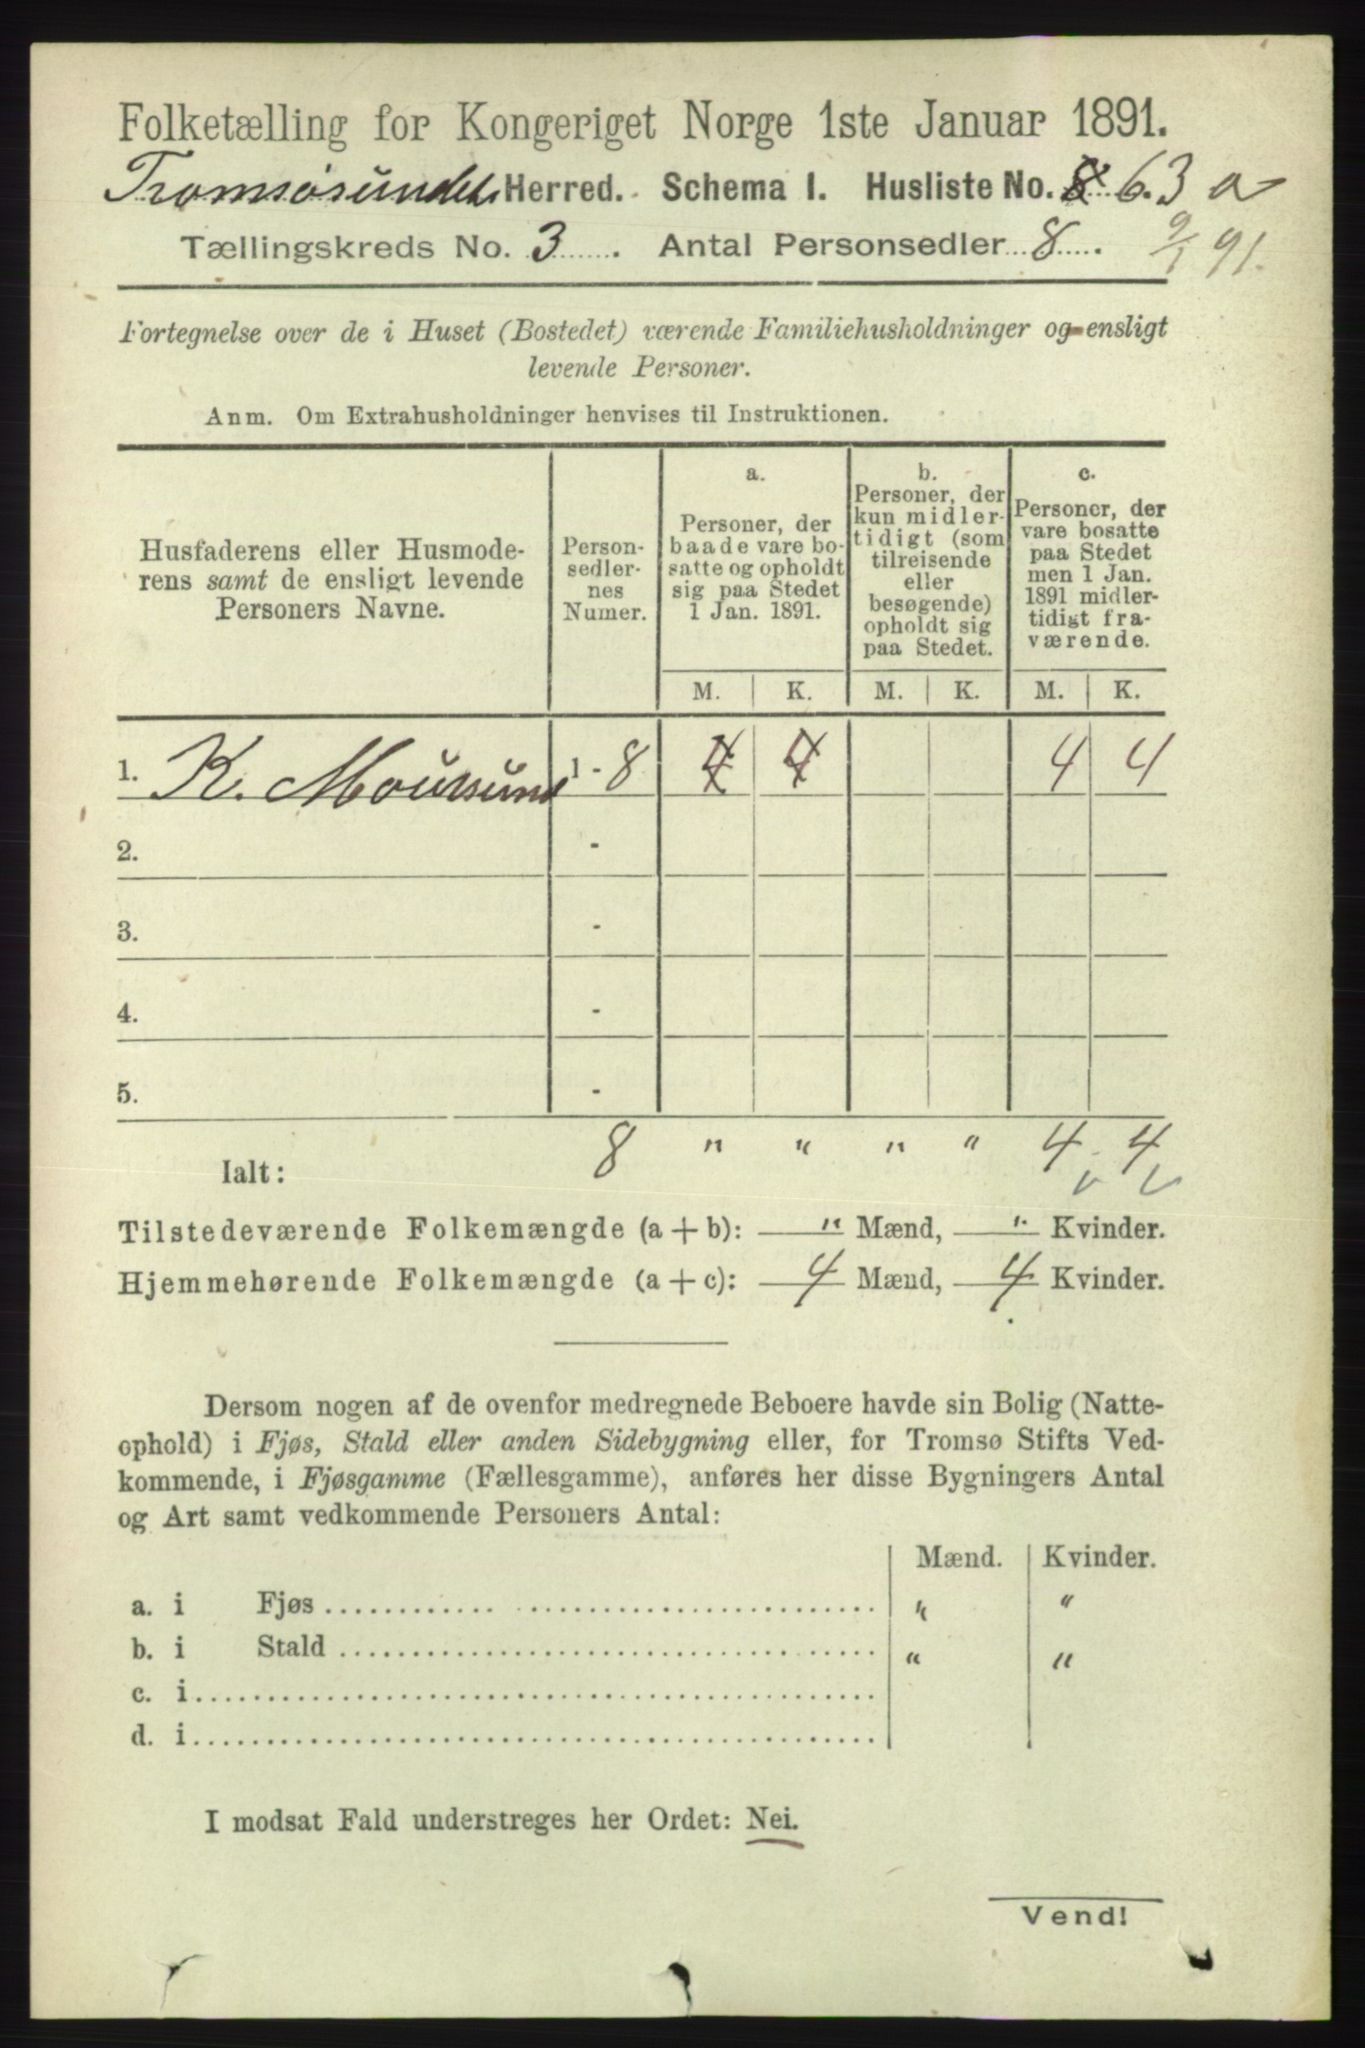 Folketælling for Kongeriget Norge 1ste Januar 1891.
Tromsøsundets Herred. Schema I. Husliste No. 8 63 a
Tællingskreds No. 3. Antal Personsedler 8. 9/1 91.
Fortegnelse over de i Huset (Bostedet) værende Familiehusholdninger og ensligt
levende Personer.
Anm. Om Extrahusholdninger henvises til Instruktionen.
Husfaderens eller Husmode-
rens samt de ensligt levende
Personers Navne.
Person-
sedler-
nes
Numer.
a.
Personer, der
baade vare bo-
satte og opholdt
sig paa Stedet
1 Jan. 1891.
b.
Personer, der
kun midler-
tidigt (som
tilreisende
eller
besøgende)
opholdt sig
paa Stedet.
c.
Personer, der
vare bosatte
paa Stedet
men 1 Jan.
1891 midler-
tidigt fra-
værende.
M. K. M. K. M. K.
1. K. Moursund 1 - 8 4 4 4 4
2. -
3. -
4. -
5. -
Ialt: 8 " " " " 4 4
Tilstedeværende Folkemængde (a + b): " Mænd, " Kvinder.
Hjemmehørende Folkemængde (a + c): 4 Mænd, 4 Kvinder.
Dersom nogen af de ovenfor medregnede Beboere havde sin Bolig (Natte-
ophold) i Fjøs, Stald eller anden Sidebygning eller, for Tromsø Stifts Ved-
kommende, i Fjøsgamme (Fællesgamme), anføres her disse Bygningers Antal
og Art samt vedkommende Personers Antal:
Mænd. Kvinder.
a. i Fjøs " "
b. i Stald " "
c. i
d. i
I modsat Fald understreges her Ordet: Nei.
Vend!